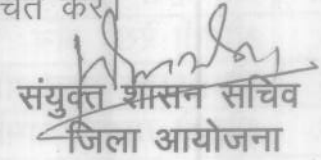 चित करें।
संयुक्त शासन सचिव
जिला आयोजना